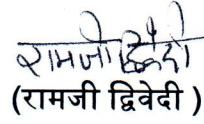 रामजी द्विवेदी
(रामजी द्विवेदी )